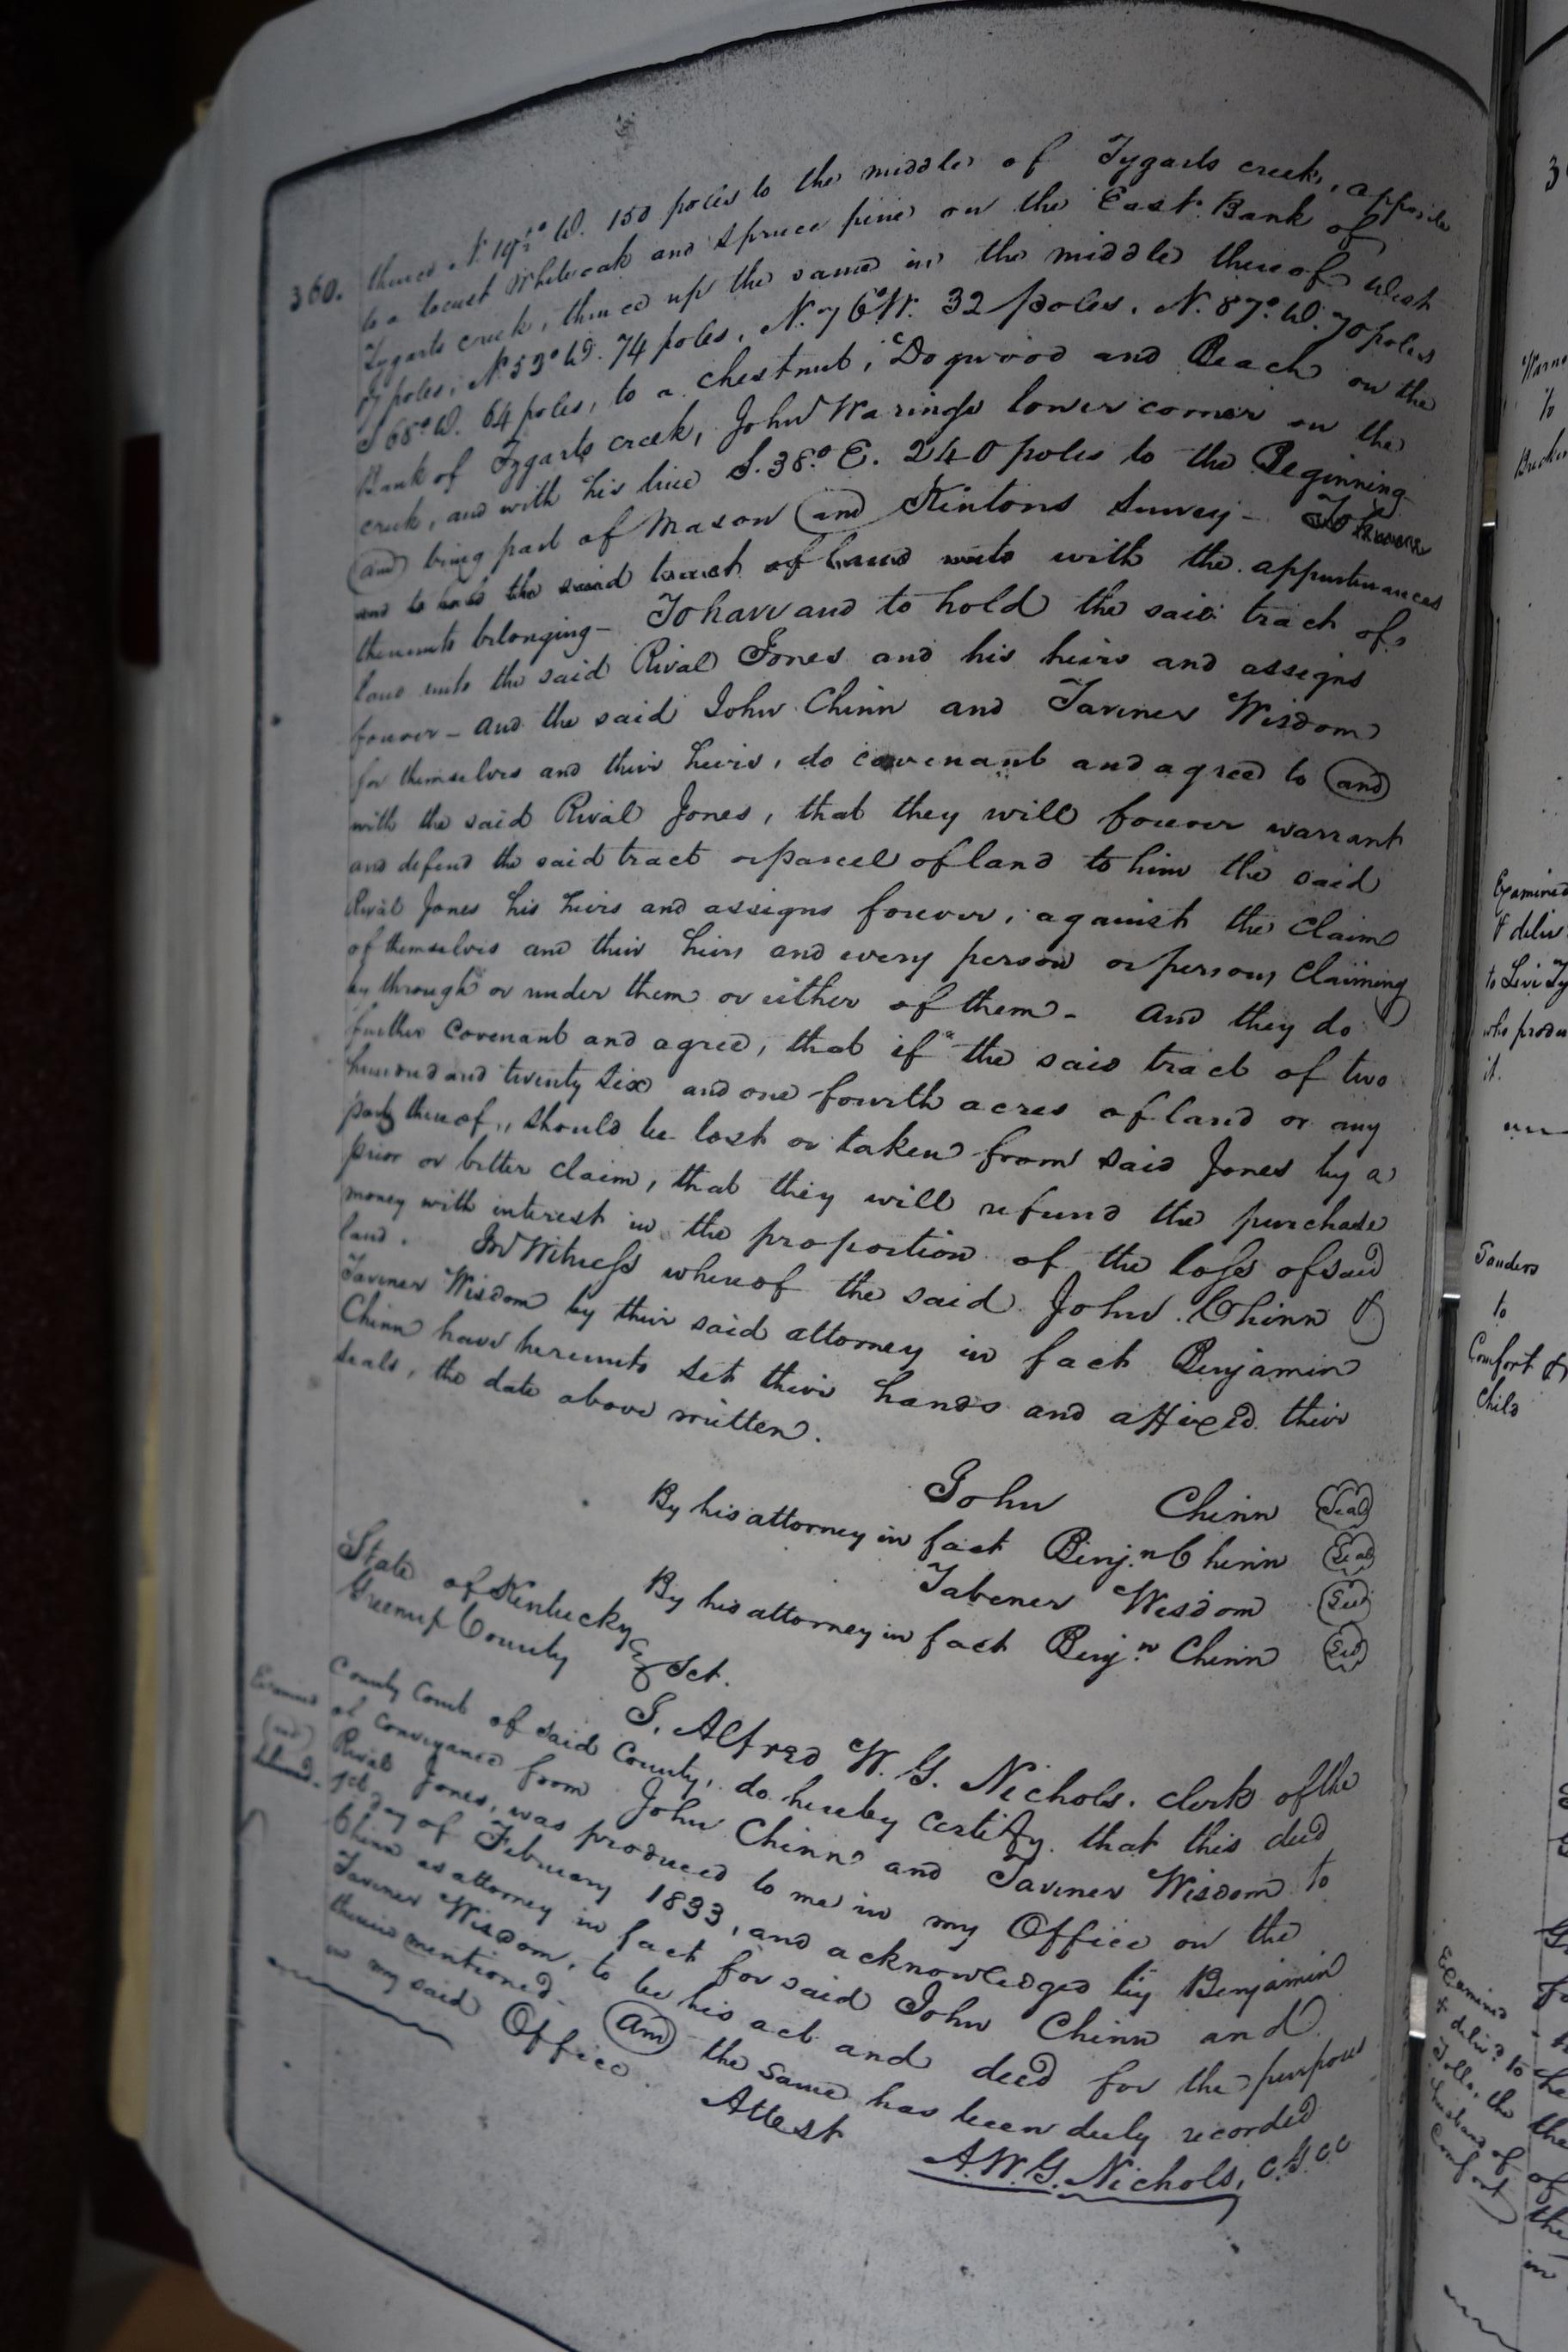 360.
thence N 19½° W. 150 poles to the middle of Tygarts creek, opposite
to a locust Whiteoak and Spruce pine on the East Bank of
Tygarts creek, thence up the same in the middle thereof West
poles, N 53° W. 74 poles, N. 76° W. 32 poles. N. 87° W. 70 poles
S 68° W. 64 poles, to a chestnut, Dogwood and Beach on the
Bank of Tygarts creek, John Warings lower corner on the
creek, and with his line S. 38° E. 240 poles to the Beginning
and being part of Mason and Kintons Survey - To have
and to hold the said tract of land unto with the appurtenances
thereunto belonging - To have and to hold the said tract of
land unto the said Rival Jones and his heirs and assigns
forever - and the said John Chinn and Tavener Wisdom
for themselves and their heirs, do covenant and agree to and
with the said Rival Jones, that they will forever warrant
and defend the said tract or parcel of land to him the said
Rival Jones his heirs and assigns forever, against the claim
of themselves and their heirs and every person or persons claiming
by through or under them or either of them - And they do
further covenant and agree, that if the said tract of two
hundred and twenty six and one fourth acres of land or any
part thereof, should be lost or taken from said Jones by a
prior or better claim, that they will refund the purchase
money with interest in the proportion of the loss of said
land. In Witness whereof the said John Chinn &
Tavener Wisdom by their said attorney in fact Benjamin
Chinn have hereunto set their hands and affixed their
seals, the date above written.
John Chinn Seal
By his attorney in fact Benj.n Chinn Seal
Tabener Wisdom Seal
By his attorney in fact Benj.n Chinn Seal
State of Kentucky
Greenup County Sct.
I, Alfred W. G. Nichols, clerk of the
County Court of said County, do hereby certify that this deed
of conveyance from John Chinn and Tavener Wisdom to
Rival Jones, was produced to me in my Office on the
1st day of February 1833, and acknowledged by Benjamin
Chinn as attorney in fact for said John Chinn and
Tavener Wisdom, to be his act and deed for the purposes
therein mentioned - And the same has been duly recorded
in my said Office.
Attest
A. W. G. Nichols, C.G.C.C
Examined
and
Sanders
to
Comfort &
child
Examined
& deliv
to Levi
who produ
it.
Examined
& deliv.d to
the
husband of
Comfort